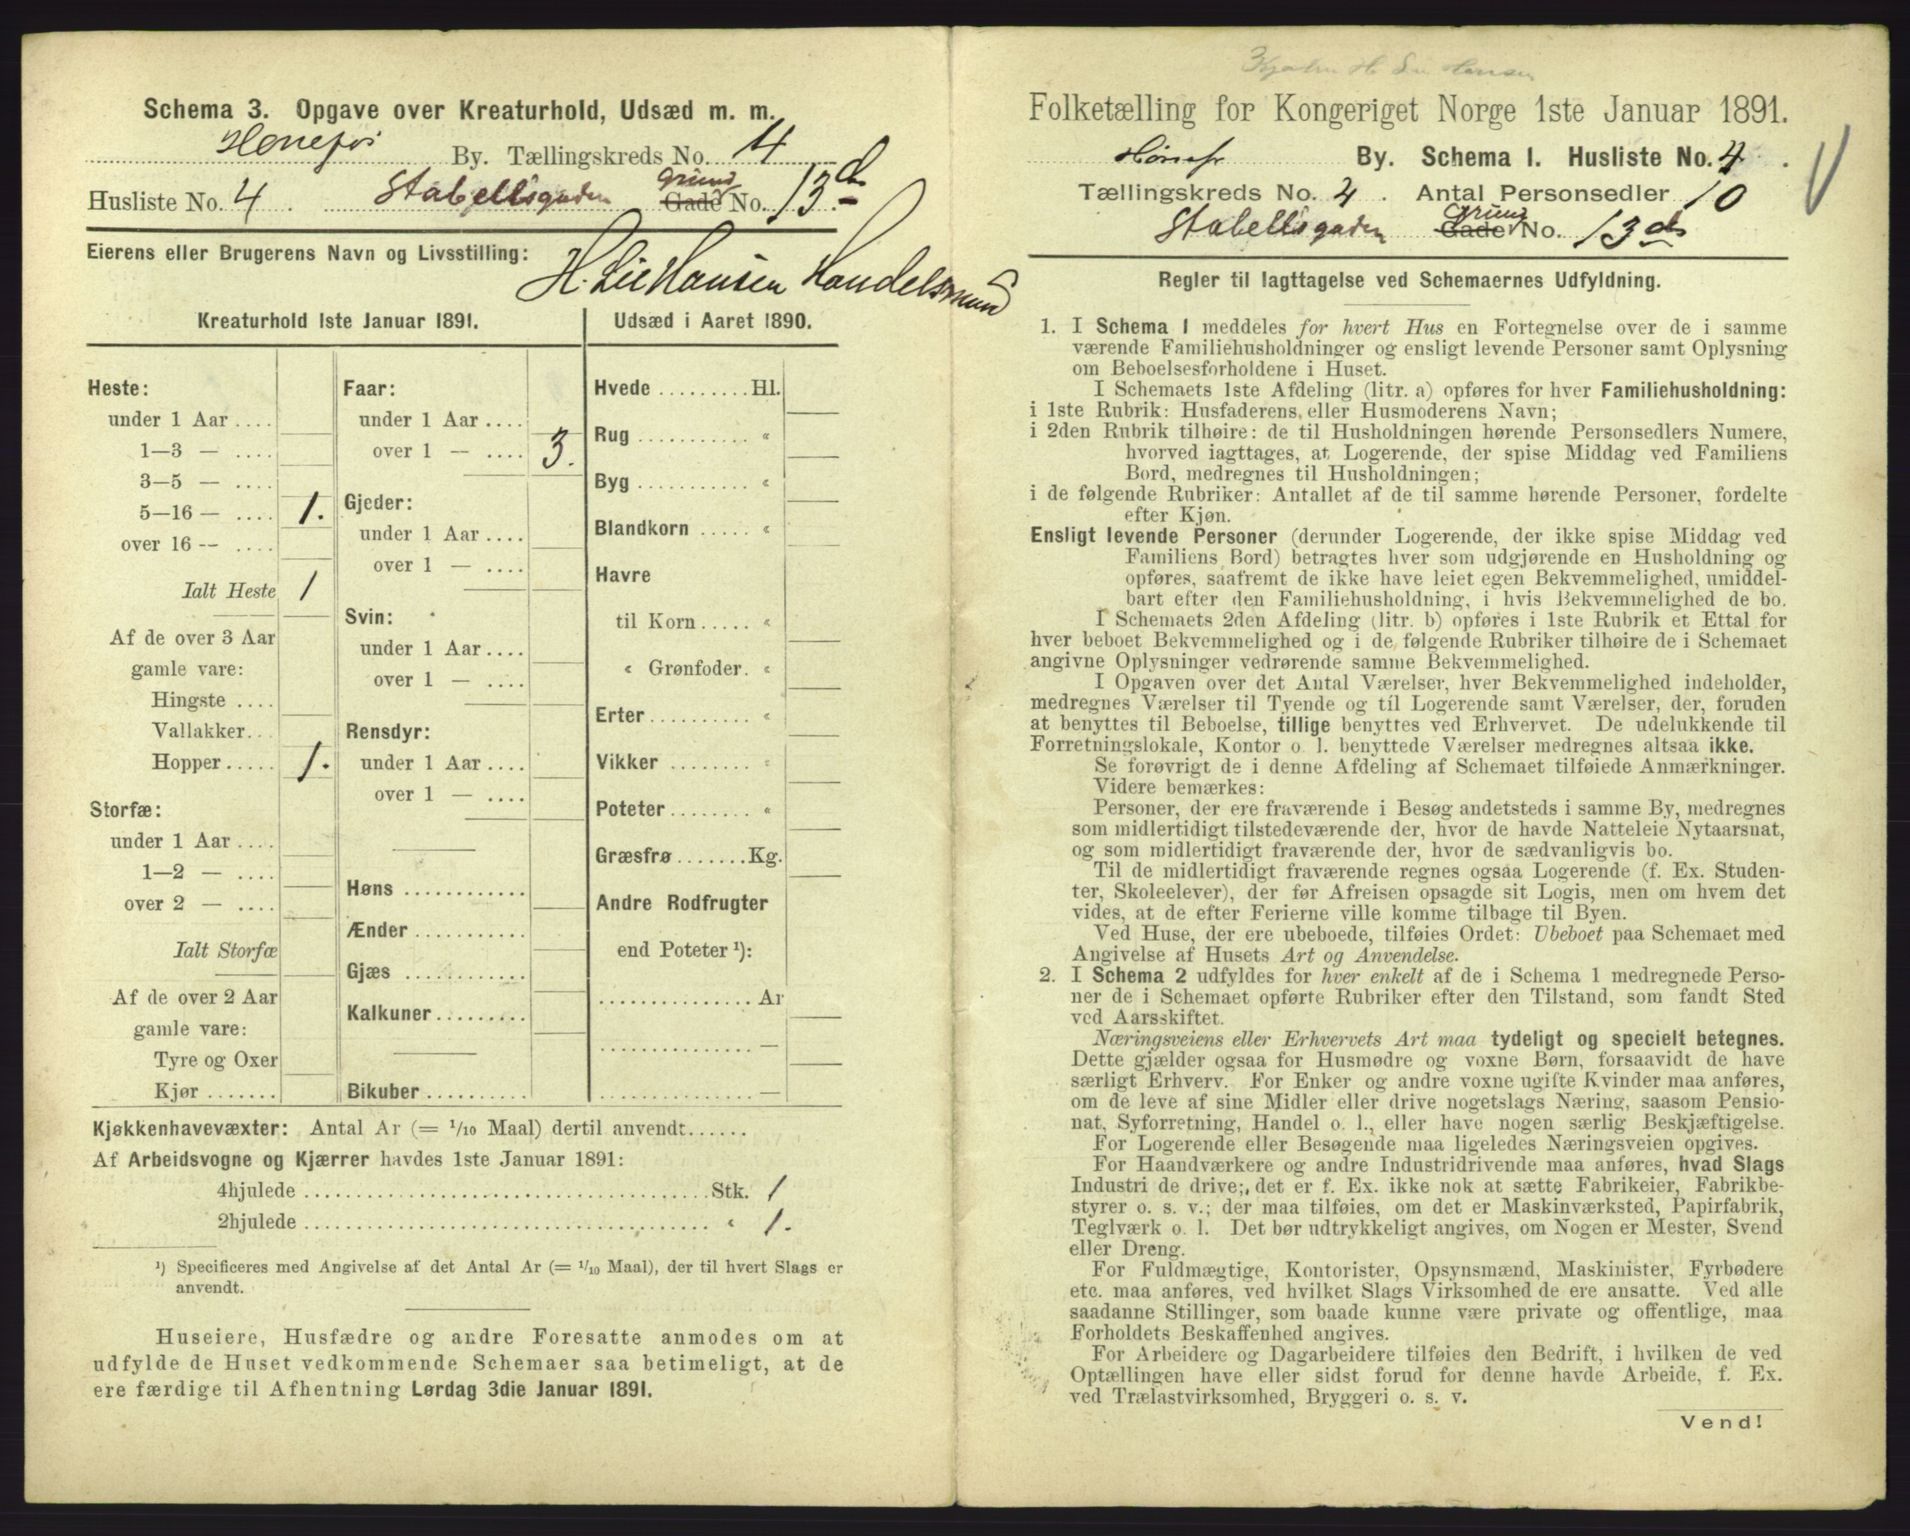 Schema 3. Opgave over Kreaturhold, Udsæd m. m.
Hønefos By. Tællingskreds No. 4
Husliste No. 4 . Stabellsgaden Grund Gade No. 13 d
Eierens eller Brugerens Navn og Livsstilling: H. Lie Hansen Handelsmand
Kreaturhold 1ste Januar 1891.
Heste:
under 1 Aar ....
1—3 — ....
3—5 — ....
5—16 — .... 1.
over 16 -- ....
Ialt Heste 1
Af de over 3 Aar
gamle vare:
Hingste ....
Vallakker...
Hopper..... 1.
Storfæ:
under 1 Aar ....
1—2 — ....
over 2 — ....
Ialt Storfæ
Af de over 2 Aar
gamle vare:
Tyre og Oxer
Kjør .......
Faar:
under 1 Aar ....
over 1 — .... 3.
Gjeder:
under 1 Aar ....
over 1 — ....
Svin:
under 1 Aar ....
over 1 — ....
Rensdyr:
under 1 Aar ....
over 1 — ....
Høns ............
Ænder ...........
Gjæs ............
Kalkuner.........
Bikuber ..........
Udsæd i Aaret 1890.
Hvede .........Hl.
Rug ........... «
Byg ........... «
Blandkorn ..... «
Havre
til Korn..... «
« Grønfoder. «
Erter.......... «
Vikker ........ «
Poteter........ «
Græsfrø.......Kg.
Andre Rodfrugter
end Poteter ¹):
............... Ar
............... —
............... —
Kjøkkenhavevæxter: Antal Ar (= ¹/₁₀ Maal) dertil anvendt......
Af Arbeidsvogne og Kjærrer havdes 1ste Januar 1891:
4hjulede ........................................Stk. 1
2hjulede ........................................ « 1.
¹) Specificeres med Angivelse af det Antal Ar (= ¹/₁₀ Maal), der til hvert Slags er
anvendt.
Huseiere, Husfædre og andre Foresatte anmodes om at
udfylde de Huset vedkommende Schemaer saa betimeligt, at de
ere færdige til Afhentning Lørdag 3die Januar 1891.
Folketælling for Kongeriget Norge 1ste Januar 1891.
Hønefs By. Schema I. Husliste No. 4 .
Tællingskreds No. 4 . Antal Personsedler 10
Stabellsgaden Grund Gade No. 13 d
Regler til Iagttagelse ved Schemaernes Udfyldning.
1. I Schema 1 meddeles for hvert Hus en Fortegnelse over de i samme
værende Familiehusholdninger og ensligt levende Personer samt Oplysning
om Beboelsesforholdene i Huset.
I Schemaets 1ste Afdeling (litr. a) opføres for hver Familiehusholdning:
i 1ste Rubrik: Husfaderens eller Husmoderens Navn;
i 2den Rubrik tilhøire: de til Husholdningen hørende Personsedlers Numere,
hvorved iagttages, at Logerende, der spise Middag ved Familiens
Bord, medregnes til Husholdningen;
i de følgende Rubriker: Antallet af de til samme hørende Personer, fordelte
efter Kjøn.
Ensligt levende Personer (derunder Logerende, der ikke spise Middag ved
Familiens Bord) betragtes hver som udgjørende en Husholdning og
opføres, saafremt de ikke have leiet egen Bekvemmelighed, umiddel-
bart efter den Familiehusholdning, i hvis Bekvemmelighed de bo.
I Schemaets 2den Afdeling (litr. b) opføres i 1ste Rubrik et Ettal for
hver beboet Bekvemmelighed og i de følgende Rubriker tilhøire de i Schemaet
angivne Oplysninger vedrørende samme Bekvemmelighed.
I Opgaven over det Antal Værelser, hver Bekvemmelighed indeholder,
medregnes Værelser til Tyende og til Logerende samt Værelser, der, foruden
at benyttes til Beboelse, tillige benyttes ved Erhvervet. De udelukkende til
Forretningslokale, Kontor o. l. benyttede Værelser medregnes altsaa ikke.
Se forøvrigt de i denne Afdeling af Schemaet tilføiede Anmærkninger.
Videre bemærkes:
Personer, der ere fraværende i Besøg andetsteds i samme By, medregnes
som midlertidigt tilstedeværende der, hvor de havde Natteleie Nytaarsnat,
og som midlertidigt fraværende der, hvor de sædvanligvis bo.
Til de midlertidigt fraværende regnes ogsaa Logerende (f. Ex. Studen-
ter, Skoleelever), der før Afreisen opsagde sit Logis, men om hvem det
vides, at de efter Ferierne ville komme tilbage til Byen.
Ved Huse, der ere ubeboede, tilføies Ordet: Ubeboet paa Schemaet med
Angivelse af Husets Art og Anvendelse.
2. I Schema 2 udfyldes for hver enkelt af de i Schema 1 medregnede Perso-
ner de i Schemaet opførte Rubriker efter den Tilstand, som fandt Sted
ved Aarsskiftet.
Næringsveiens eller Erhvervets Art maa tydeligt og specielt betegnes.
Dette gjælder ogsaa for Husmødre og voxne Børn, forsaavidt de have
særligt Erhverv. For Enker og andre voxne ugifte Kvinder maa anføres,
om de leve af sine Midler eller drive nogetslags Næring, saasom Pensio-
nat, Syforretning, Handel o. l., eller have nogen særlig Beskjæftigelse.
For Logerende eller Besøgende maa ligeledes Næringsveien opgives.
For Haandværkere og andre Industridrivende maa anføres, hvad Slags
Industri de drive; det er f. Ex. ikke nok at sætte Fabrikeier, Fabrikbe-
styrer o. s. v.; der maa tilføies, om det er Maskinværksted, Papirfabrik,
Teglværk o. l. Det bør udtrykkeligt angives, om Nogen er Mester, Svend
eller Dreng.
For Fuldmægtige, Kontorister, Opsynsmænd, Maskinister, Fyrbødere
etc. maa anføres, ved hvilket Slags Virksomhed de ere ansatte. Ved alle
saadanne Stillinger, som baade kunne være private og offentlige, maa
Forholdets Beskaffenhed angives.
For Arbeidere og Dagarbeidere tilføies den Bedrift, i hvilken de ved
Optællingen have eller sidst forud for denne havde Arbeide, f. Ex.
ved Trælastvirksomhed, Bryggeri o. s. v.
Vend!